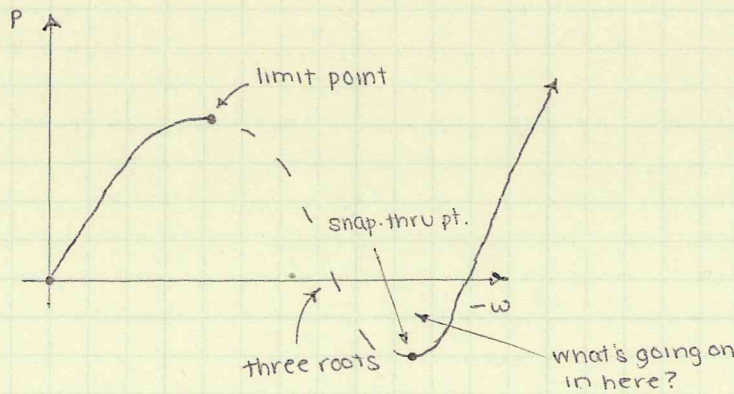 P
limit point
snap-thru pt.
-w
three roots
what's going on
in here?